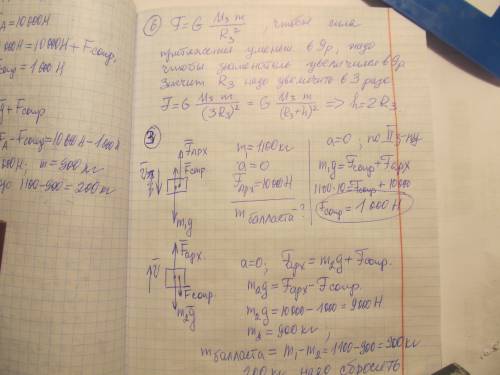 F_A = 10000Н
000Н = 10000Н + Fсопр,
Fсопр = 1000Н
F_A - Fсопр = 10000Н - 1000Н
000Н; m = 900кг
1100 - 900 = 200кг
⑥ F = G M₃ m / R₃² , чтобы сила
притяжения уменьш. в 9р, надо
чтобы знаменатель увеличился в 9р
Значит R₃ надо увеличить в 3 раза
F = G M₃ m / (3R₃)² = G M₃ m / (R₃+h)² => h = 2R₃
③
Fарх
Fсопр.
V
m₁g
m₁ = 1100кг
a = 0
Fарх = 10000Н
m балласта - ?
a = 0; по II з-ну
m₁g = Fсопр + Fарх
1100·10 = Fсопр + 10000
Fсопр = 1000Н
Fарх.
V
Fсопр.
m₂g
a = 0; Fарх = m₂g + Fсопр.
m₂g = Fарх - Fсопр.
m₂g = 10000 - 1000 = 9000Н
m₂ = 900кг,
m балласта = m₁ - m₂ = 1100 - 900 = 200кг
200кг надо сбросить